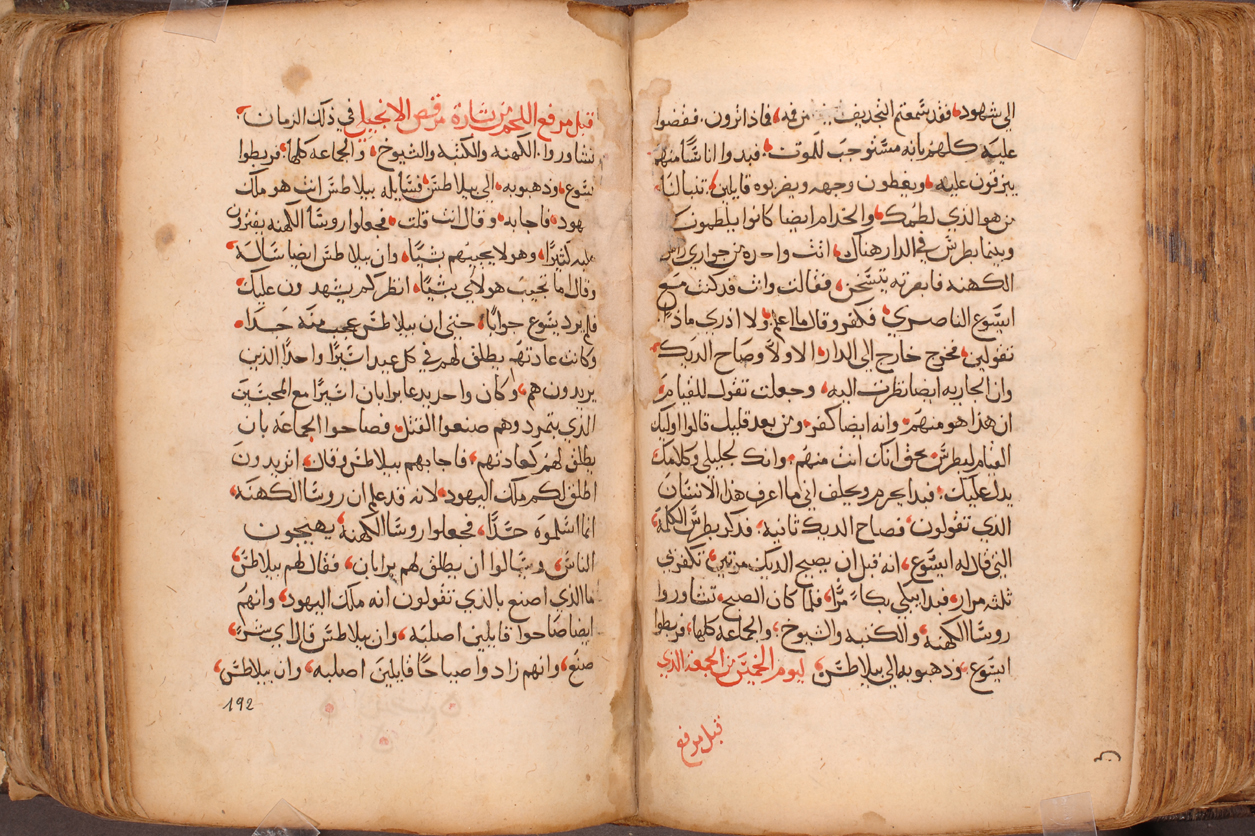 الى شهود، فقد سمعتم التجديف من فيه، فماذا ترون. فقضوا
عليه كلهم بانه مستوجب للموت. فبدوا اناسًا منهم
يبزقون عليه، ويغطون وجهه ويضربوه قايلين، تنبا لنا
من هو الذي لطمك، والخدام ايضا كانوا يلطمون
وبينما بطرس في الدار هناك، اتت واحده من جواري
الكهنه فابصرته يتسخن، فقالت وانت قد كنت مع
ايسوع الناصري، فكفر وقال ما اعلم، ولا ادري ماذا
تقولين، فخرج خارج الى الدار الاولا وصاح الديك
وان الجاريه ايضا نظرت اليه، وجعلت تقول للقيام
ان هذا هو منهم، وانه ايضا كفر، ومن بعد قليل قالوا اوليك
القيام لبطرس بحق انك انت منهم، وانك لجليلي وكلامك
يدل عليك، فبدا يحرم ويحلف اني ما اعرف هذا الانسان
الذي تقولون، فصاح الديك ثانيه، فذكر بطرس الكلمة
التي قال له ايسوع، انه قبل ان يصيح الديك مرتين، تكفر بي
ثلثه مرار، فبدا يبكي بكاً مرًا، فلما كان الصبح، تشاوروا
روسا الكهنه، والكتبه والشيوخ، والجماعه كلها، فربطوا
ايسوع، وذهبوا به الى بيلاطس، ليوم الخميس من الجمعة الذي
قبل مرفع
قبل مرفع اللحم من بشارة مرقص الانجيلي في ذلك الزمان
تشاوروا، الكهنه والكتبه والشيوخ، والجماعه كلها، فربطوا
يسوع، وذهبوا به، الى بيلاطس، فسأيله بيلاطس انت هو ملك
يهود، فاجابه، وقال انت قلت، فجعلوا روسا الكهنه يفترون
عليه كثيرًا، وهو لا يجيبهم شيًا، وان بيلاطس ايضا ساله
وقال اما تجيب هولاي بشيًا، انظر كم يشهدون عليك
فلم يرد يسوع جوابًا، حتى ان بيلاطس عجب منه جدًا
وكانت عادته يطلق لهم في كل عيد اسيرًا واحدًا الذين
يريدون هم، وكان واحد يدعا برابان اسيرًا مع المحبسين
الذي يتمرد وهم صنعوا القتل، فصاحوا الجماعه بان
يطلق لهم كعادتهم، فاجابهم بيلاطس وقال، اتريدون
اطلق لكم ملك اليهود، لانه قد علم ان روسا الكهنه
انما اسلموه حسدًا، فجعلوا روسا الكهنه يهيجون
الناس، وسالوا ان يطلق لهم برابان، فقال لهم بيلاطس
ما الذي اصنع بالذي تقولون انه ملك اليهود، وانهم
ايضا صاحوا قايلين اصلبه، وان بيلاطس قال اي شر
صنع، وانهم زادوا صياحًا قايلين اصلبه، وان بيلاطس
192